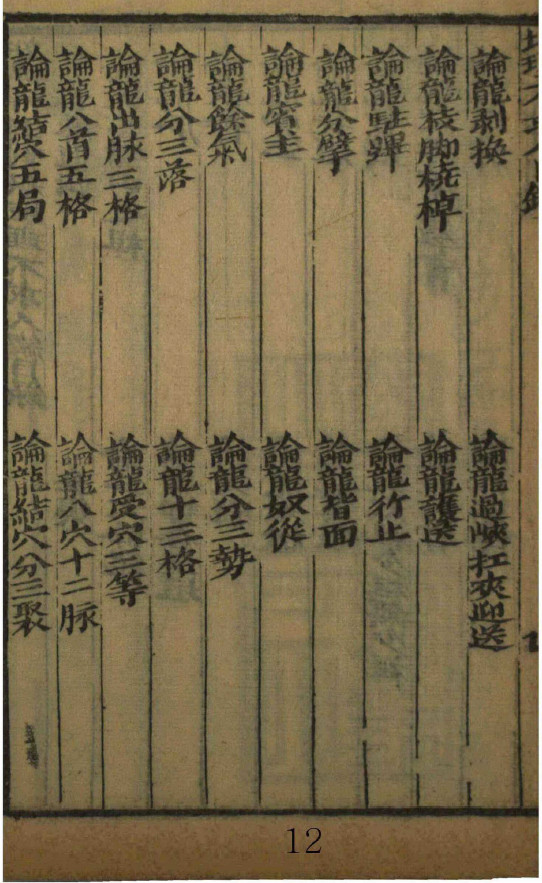 論龍剥換
論龍過峽扛夾迎送
論龍枝脚橈棹
論龍護送
論龍駐蹕
論龍行止
論龍分擘
論龍背面
論龍賓主
論龍奴從
論龍餘氣
論龍分三勢
論龍分三落
論龍十三格
論龍出脉三格
論龍受穴三等
論龍入首五格
論龍入穴十二脉
論龍結穴五局
論龍結穴分三聚
12